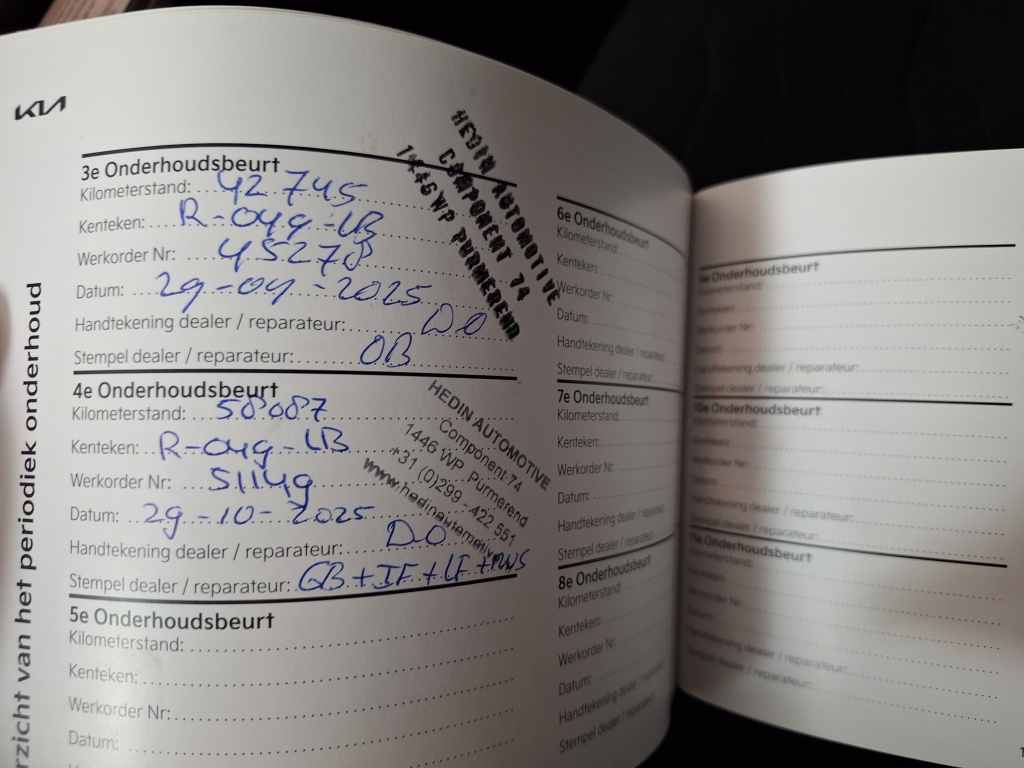 KIA
rzicht van het periodiek onderhoud
3e Onderhoudsbeurt
Kilometerstand: 42745
Kenteken: R-049-LB
Werkorder Nr: 45278
Datum: 29-04-2025
Handtekening dealer / reparateur: DO
Stempel dealer / reparateur: OB
HEDIN AUTOMOTIVE
COMPONENT 74
1446 WP PURMEREND
4e Onderhoudsbeurt
Kilometerstand: 58087
Kenteken: R-049-LB
Werkorder Nr: 51149
Datum: 29-10-2025
Handtekening dealer / reparateur: DO
Stempel dealer / reparateur: GB+IF+LF+RWS
HEDIN AUTOMOTIVE
Component 74
1446 WP Purmerend
+31 (0)299 - 422 551
5e Onderhoudsbeurt
Kilometerstand:
Kenteken:
Werkorder Nr:
Datum:
6e Onderhoudsbeurt
Kilometerstand:
Kenteken:
Werkorder Nr:
Datum:
Handtekening dealer / reparateur:
Stempel dealer / reparateur:
7e Onderhoudsbeurt
Kilometerstand:
Kenteken:
Werkorder Nr:
Datum:
Handtekening dealer / reparateur:
Stempel dealer / reparateur:
8e Onderhoudsbeurt
Kilometerstand:
Kenteken:
Werkorder Nr:
Datum:
Handtekening dealer / reparateur:
Stempel dealer / reparateur:
9e Onderhoudsbeurt
Kilometerstand:
Kenteken:
Werkorder Nr:
Datum:
Handtekening dealer / reparateur:
Stempel dealer / reparateur:
10e Onderhoudsbeurt
Kilometerstand:
Kenteken:
Werkorder Nr:
Datum:
Handtekening dealer / reparateur:
Stempel dealer / reparateur:
11e Onderhoudsbeurt
Kilometerstand:
Kenteken:
Werkorder Nr:
Datum:
Handtekening dealer / reparateur:
Stempel dealer / reparateur: